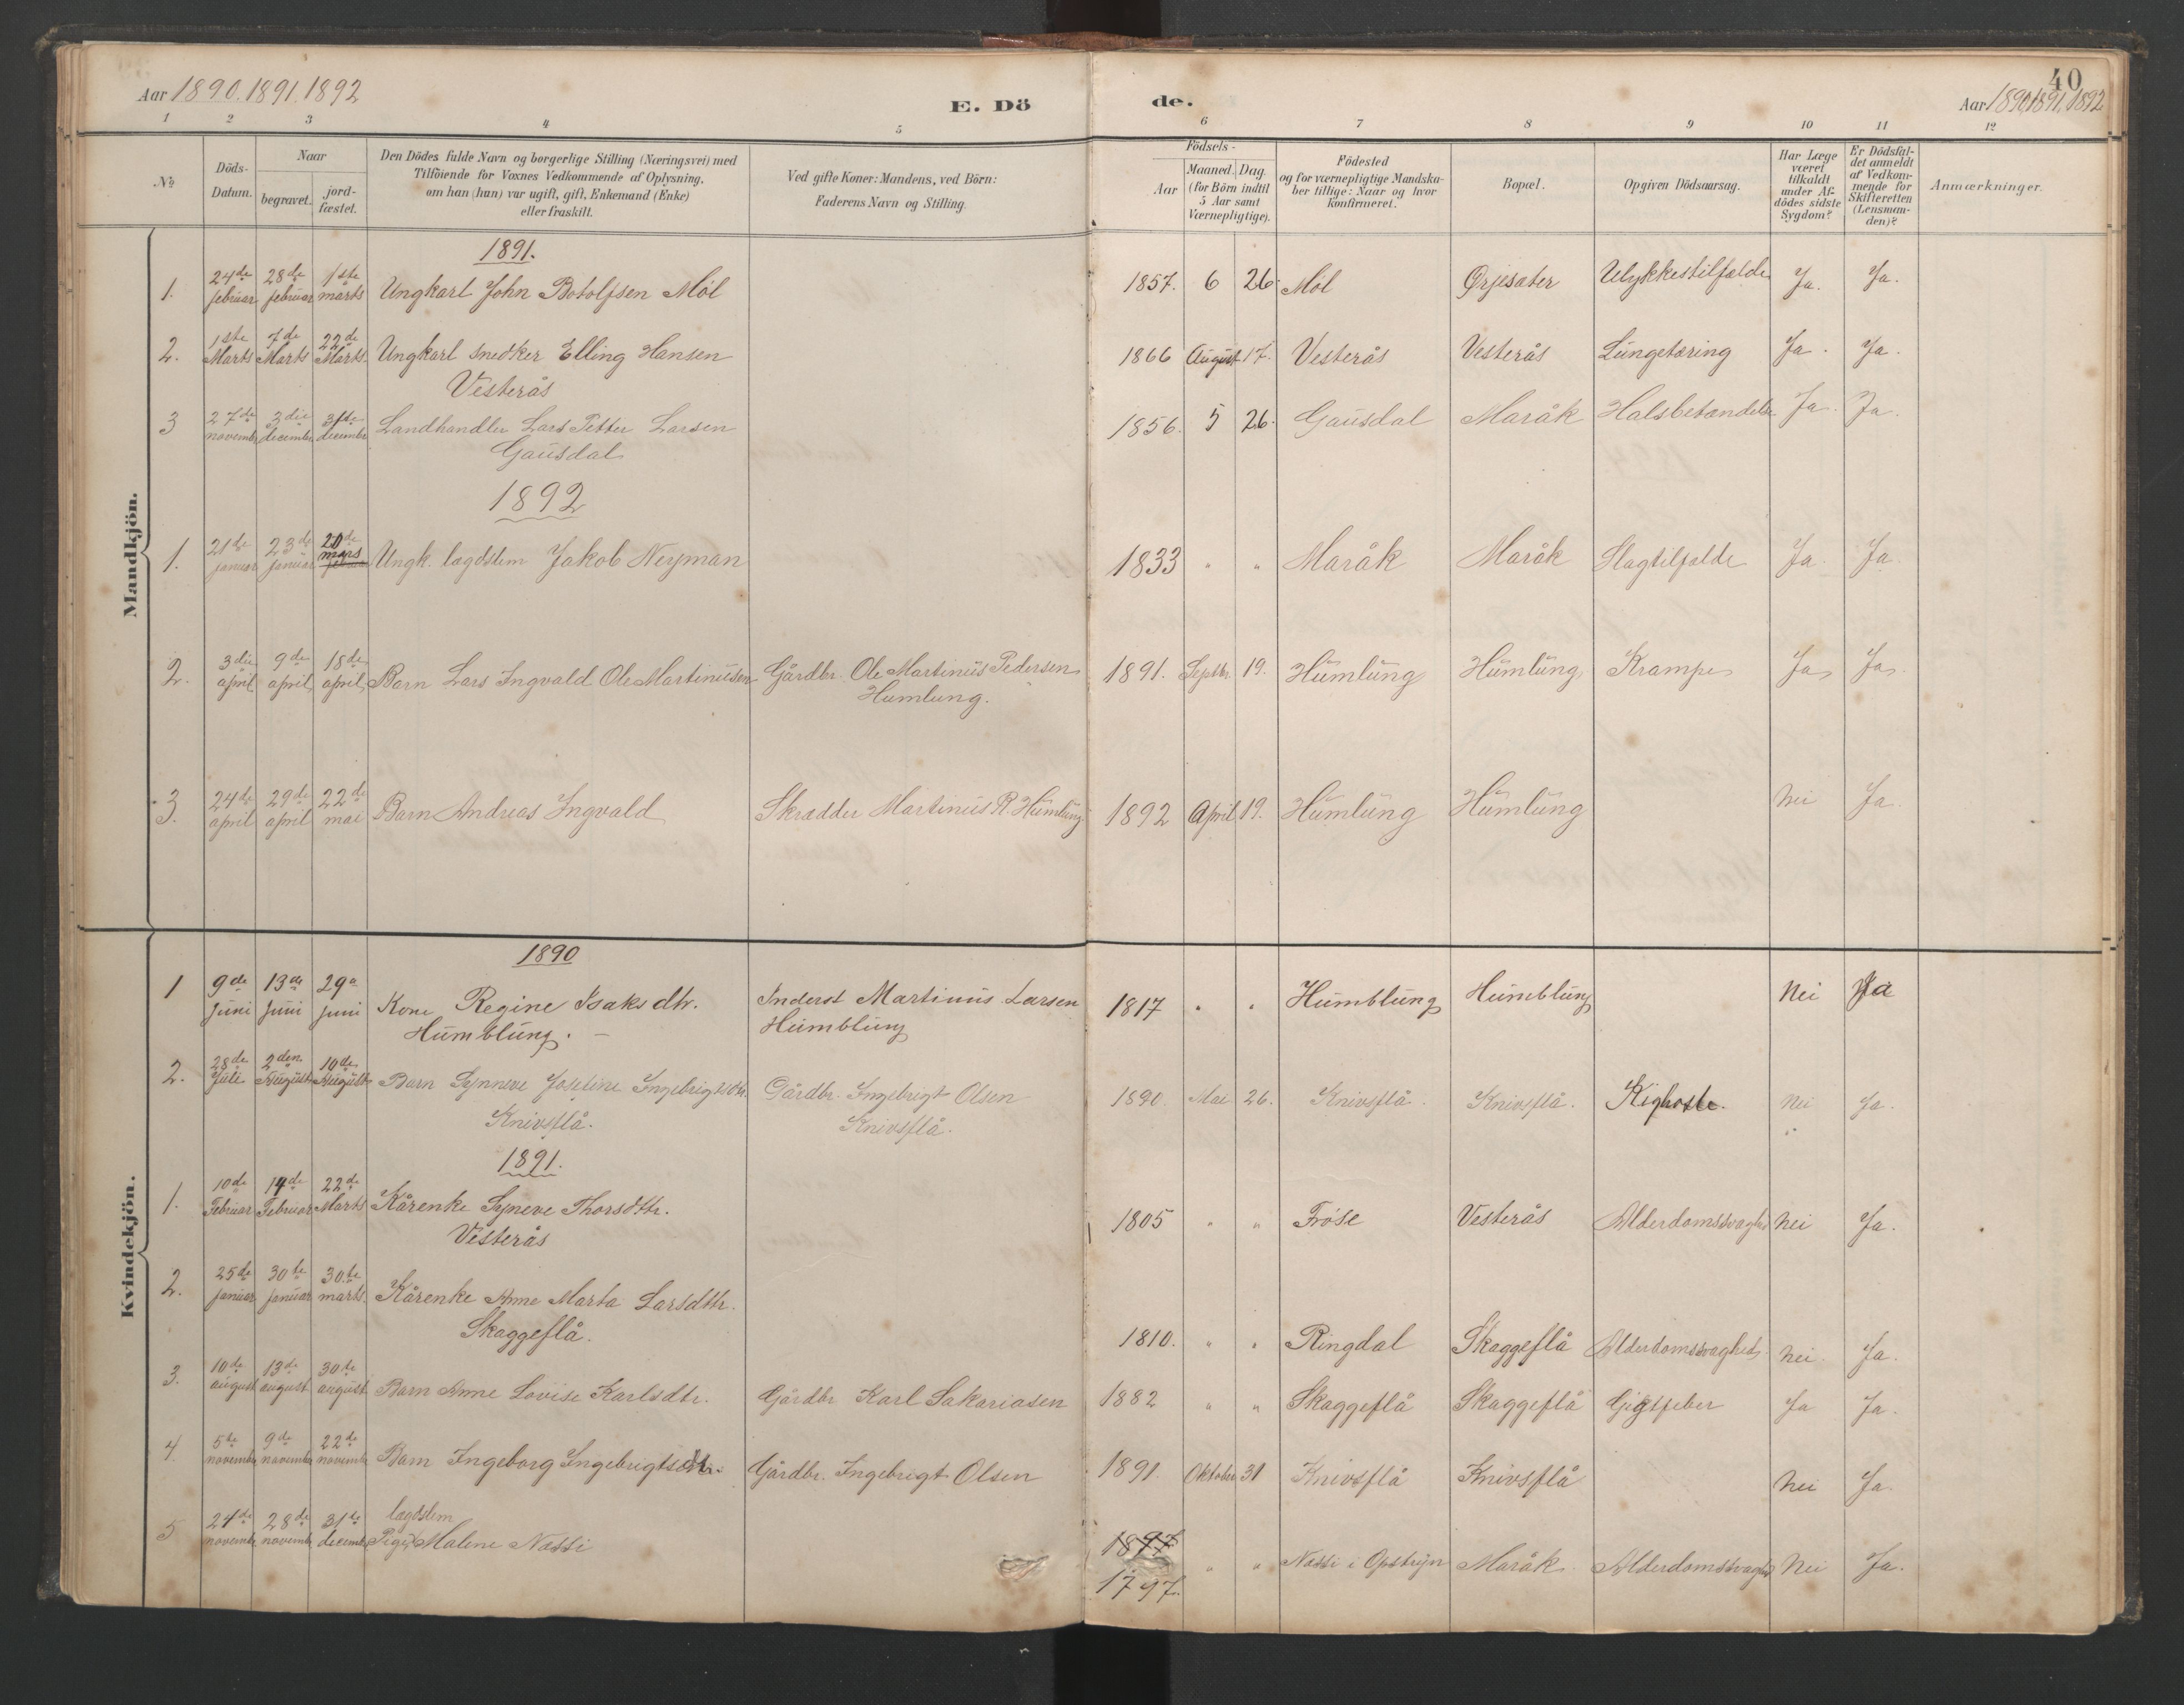 Aar 1890.1891.1892
E. Dö
de.
40
Aar 1890,1891,1892
1 2 3 4 5 6 7 8 9 10 11 12
No
Döds-
Datum.
Naar
begravet.
jord-
fæstet.
Den Dödes fulde Navn og borgerlige Stilling (Næringsvei) med
Tilföiende for Voxnes Vedkommende af Oplysning,
om han (hun) var ugift, gift, Enkemand (Enke)
eller fraskilt.
Ved gifte Koner: Mandens, ved Börn:
Faderens Navn og Stilling.
Födsels-
Aar
Maaned. Dag.
(for Börn indtil
5 Aar samt
Værnepligtige).
Födested
og for værnepligtige Mandska-
ber tillige: Naar og hvor
konfirmeret.
Bopæl.
Opgiven Dödsaarsag.
Har Læge
været
tilkaldt
under Af-
dödes sidste
Sygdom?
Er Dödsfal-
det anmeldt
af Vedkom-
mende for
Skifteretten
(Lensman-
den)?
Anmærkninger.
Mandkjön.
1891.
1. 24de februar 28de februar 1ste marts Ungkarl John Botolfsen Möl 1857. 6 26. Möl Ørjesæter Ulykkestilfælde Ja. Ja.
2. 1ste Marts 7de Marts 22de Marts. Ungkarl snedker Elling Hansen 1866 August 17. Vesterås Vesterås Lungetæring Ja. Ja.
Vesterås
3 27de novembr 3die decembr 31te decembr Landhandler Lars Petter Larsen 1856. 5 26. Gausdal Maråk Halsbetændelse Ja. Ja.
Gausdal
1892
1. 21de januar 23de januar 20de mars februar Ungk. lægdslem Jakob Neyman 1833 " " Maråk Maråk Slagtilfælde Ja. Ja.
2. 3die april 9de april 18de april Barn Lars Ingvald Ole Martinusen Gårdbr. Ole Martinus Pedersen 1891. Septbr. 19. Humlung Humlung Krampe Ja Ja.
Humlung.
3. 24de april 29de april 22de mai Barn Andreas Ingvald Skrædder Martinus R. Humlung 1892 April 19. Humlung Humlung Nei Ja.
Kvindekjön.
1890
1 9de Juni 13de Juni 29de Juni Kone Regine Isaksdtr. Inderst Martinus Larsen 1817 " " Humblung Humblung Nei Ja
Humblung. Humblung
2. 28de Juli 2den August 10de August Barn Synneve Josefine Ingebrigtsdtr. Gårdbr. Ingebrigt Olsen 1890. Mai 26. Knivsflå. Knivsflå. Kighoste. Nei Ja.
Knivsflå. Knivsflå.
1891.
1. 10de Februar 14de Februar 22de Marts Kårenke Syneve Thorsdtr. 1805 " " Fröse Vesterås Alderdomssvaghed Nei Ja.
Vesterås
2. 25de januar 30te januar 30te marts. Kårenke Anne Marta Larsdtr. 1810. " " Ringdal Skaggeflå Alderdomssvaghed. Nei. Ja.
Skaggeflå.
3. 10de august 13de august 30te august Barn Anne Lovise Karlsdtr. Gårdbr Karl Sakariasen 1882 " " Skaggeflå Skaggeflå Gigtfeber Ja Ja.
4. 5te novembr 9de novembr 22de novembr Barn Ingeborg Ingebrigtsdtr. Gårdbr. Ingebrigt Olsen 1891. Oktober 31 Knivsflå Knivsflå Nei Ja.
5 24de novembr 28de novembr 31te decembr lægdslem Pige Malene Næssi 1797. " " Næssi i Opstryn Maråk. Alderdomssvaghed Nei Ja.